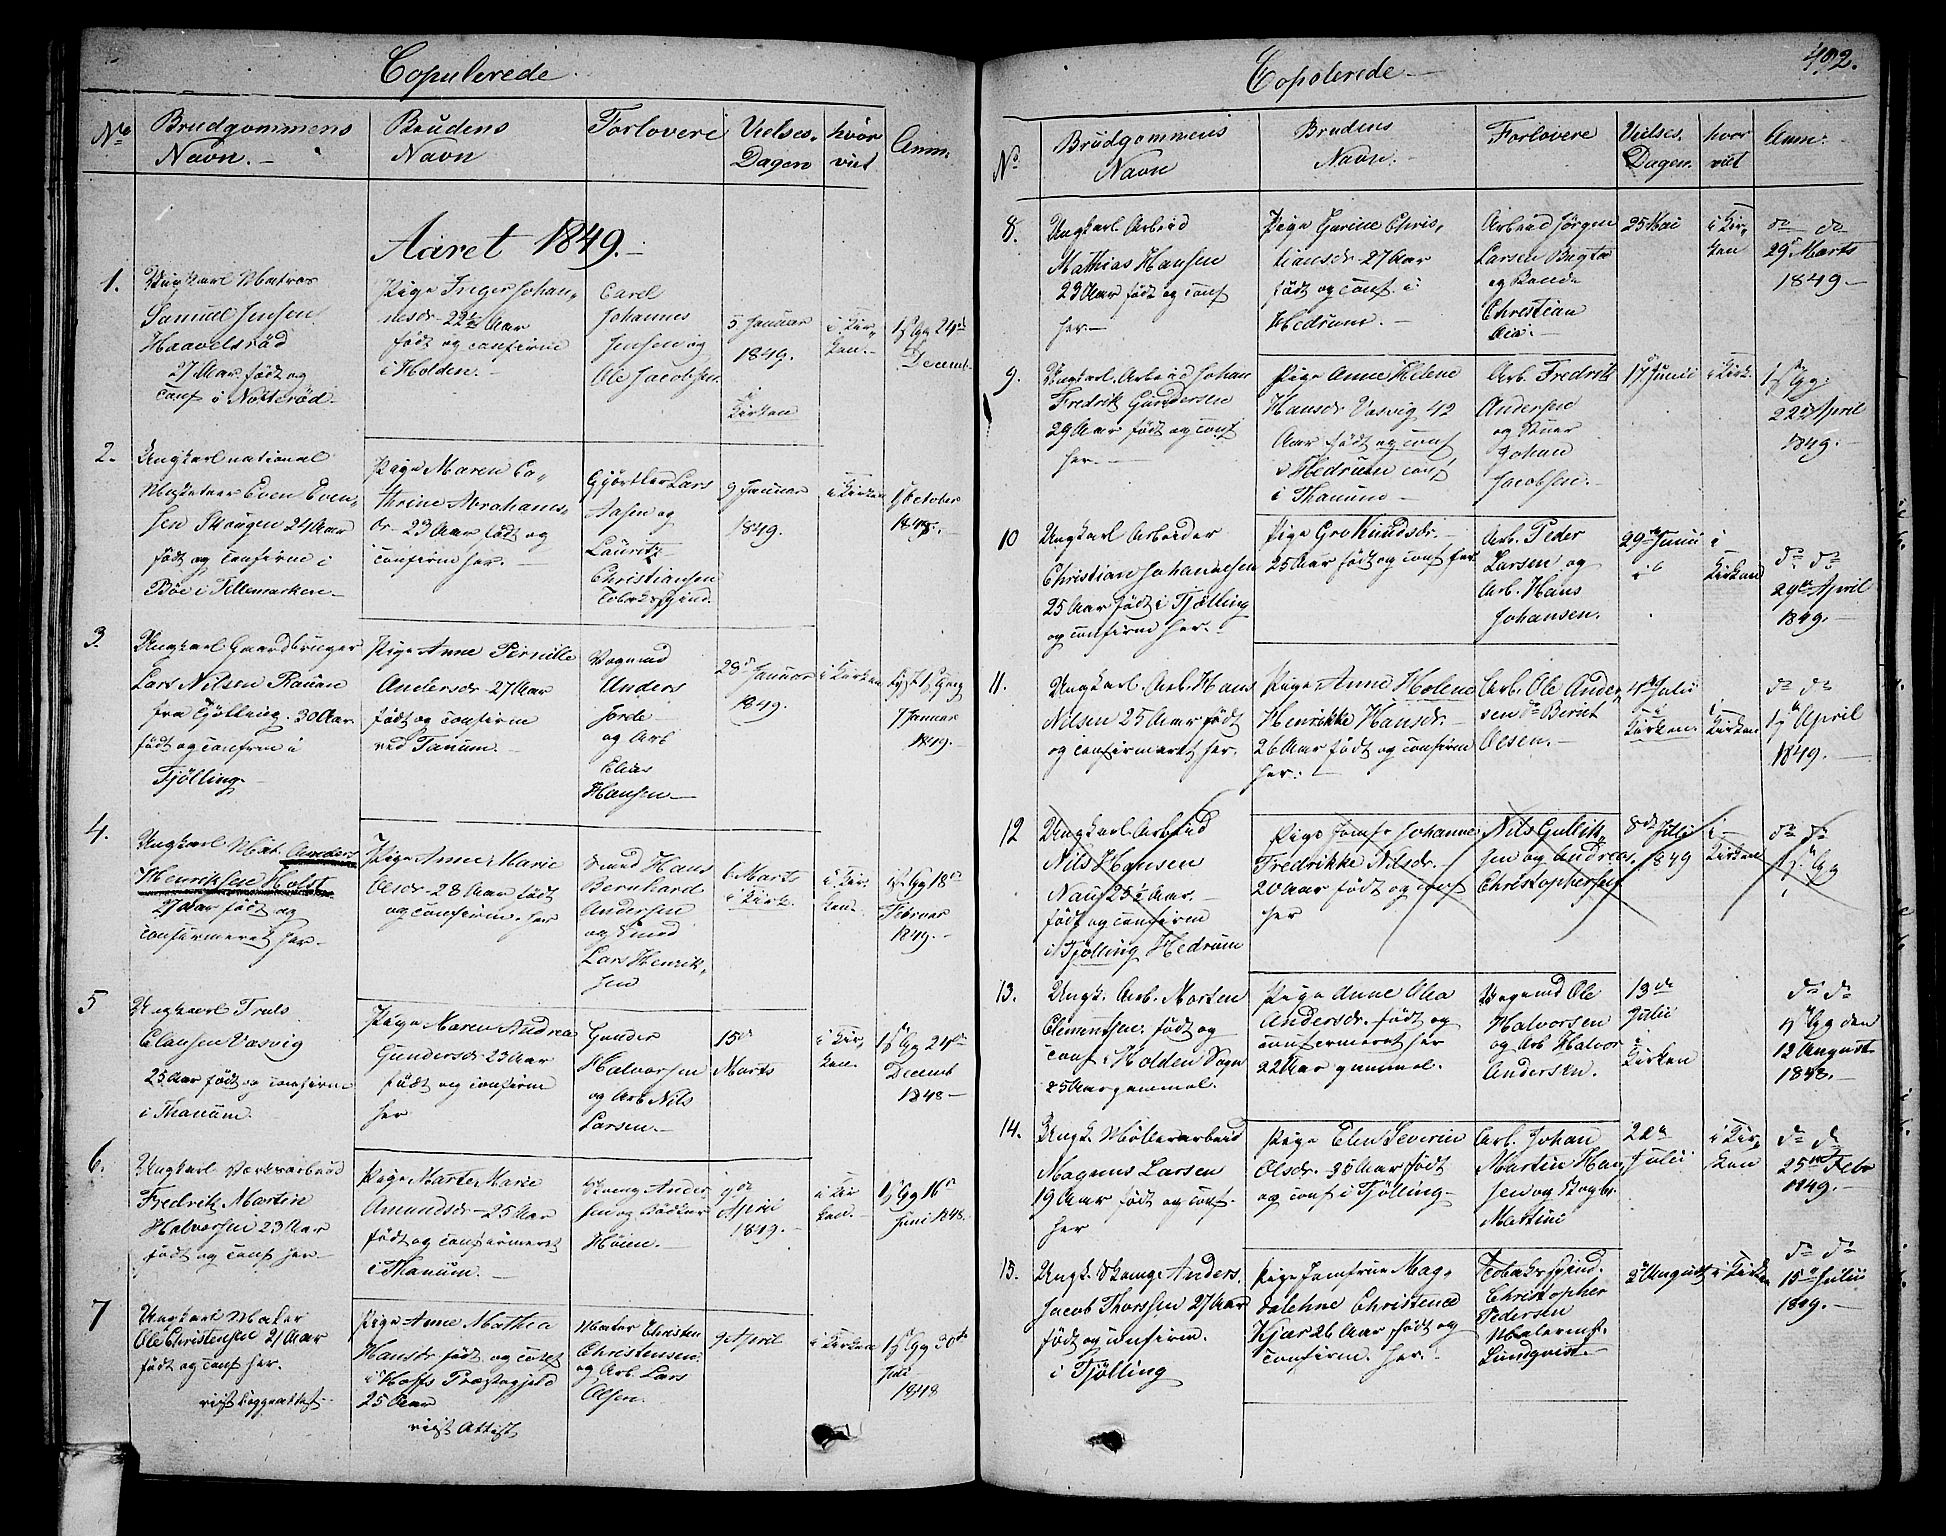 Copulerede
No
Brudgommens
Navn.
Brudens
Navn
Forlovere
Vielses-
Dagen
hvor
viet
Anm:
Aaret 1849.
1.
Ungkarl Matros
Samuel Jensen
Haavelsröd
27 Aar født og
conf i Notteröd
Pige Inger Johan-
nesdr 22½ Aar
født og confirm
i Holden.
Carel
Johannes
Jensen og
Ole Jacobsen
5 Januar
1849.
i
Kirken
i Kir-
ken.
1st Gg 24de
Decemb.
2.
Ungkarl national
Even Even-
sen Skougen 24 Aar
født og confirm i
Böe i Tillemarken
Pige Maren Ca-
thrine Abrahams-
dr 23 Aar født og
confirm her.
Gjørtler Lars
Aasen og
Lauritz
Christiansen
Tobaksspind.
9 Januar
1849.
i Kirken
October
1848.
3.
Ungkarl Gaardbruger
Lars Nilsen Rauan
fra Tjölling. 30 Aar
født og confirm i
Tjölling
Pige Anne Pernille
Andersdr 27 Aar
født og confirm
ved Tanum.
Vogmd
Anders
Jorde
og Arb
Elias
Hansen
28de Januar
1849.
i Kirken
7 Januar
1849.
4.
Ungkarl Mat. Anders
Henriksen Holst
27 Aar født og
confirmeret her
Pige Anne Marie
Olsdr 28 Aar født
og confirm. her
Smed Hans
Bernhard
Andersen
og Smed
Lars Henrik-
sen
6 Marts
i Kirk.
i Kir-
ken.
1st Gg 18de
Februar
1849.
5
Ungkarl Truls
Clausen Vasvig
25 Aar født og confirm
i Thanum.
Pige Maren Andrea
Gundersdr 23 Aar
født og confirm
her
Gunder
Halvorsen
og Arb Nils
Larsen.
15de
Marts
i Kir-
ken.
1st Gg 24de
Decemb
1848
6.
Ungkarl Værksarbeid
Fredrik Martin
Halvorsen 23 Aar
født og conf her
Pige Marte Marie
Amundsdr 25 Aar
født og confirmeret
i Thanum.
Ander
sen og Bödker
Höien.
9de
April
1849.
i Kir
ken.
1st Gg 16de
Juni 1848.
7
Ungkarl Maler
Ole Christensen 21 Aar
født og conf her.
Pige Anne Mathea
Hansdr født og conf
i Hoffs Præstegjeld
25 Aar
vist Attest
Christen
Christensen
og Arb. Lars
Olsen.
9 April
i Kirken
1st Gg 30te
Juli
1848
492.
Copulerede
No
Brudgommens
Navn
Brudens
Navn.
Forlovere
Vielses
Dagen
hvor
viet
Anm:
8.
Ungkarl Arbeid
Mathias Hansen
23 Aar født og conf
her
Pige Gurine Chris-
tiansdr 27 Aar
født og conf. i
Hedrum.
Arbeid Jörgen
Larsen Bugta
og Bonde
Christian
25 Mai
i Kir-
ken
do do
29de Marts
1849
9.
Ungkarl. Arbeid Johan
Fredrik Gundersen
29 Aar født og conf
her.
Pige Anne Helene
Hansdr Vasvig 42
Aar født og conf
i Hedrum conf
i Thanum
Arb. Fredrik
Andersen
og
Johan
Jacobsen.
17 Junii
i Kirk.
1st Gg.
22de April
1849.
10
Ungkarl Arbeider
Christian Johannesen
25 Aar født i Tjölling
og confirm her.
Pige Gro Knudsdr.
25 Aar født og conf her
Arb. Peder
Larsen og
Arb. Hans
Johansen.
29de Junii
i
Kirken
do do
29de April
1849.
11.
Ungkarl Arb. Hans
Nilsen 25 Aar født
og confirmeret her.
Pige Anne Helene
Henrikke Hansdr.
26 Aar født og confirm
her.
Arb. Ole Ander-
sen Beriet
Olsen.
4de Julii
i
Kirken.
i
Kirken
do do
April
1849.
12
Ungkarl Arbeid
Nils Hansen
Naug 25½ Aar.
født og confirm
i Tjölling Hedrum
Pige Jomfr Johanne
Fredrikke Nilsdr.
20 Aar født og conf
her
Nils Gullik-
sen og Andreas
Christophersen
8de Julii
1849
i
Kirken
do do
Gg
13.
Ungk. Arb. Morten
Clementsen. født og
conf i Holden Sogn
25 Aar gammel.
Pige Anne Olea
Andersdr. født og
confirmeret her
22 Aar gammel.
Vogmd Ole
Halvorsen
og Arb Halvor
Andersen.
13de
Julii
i
Kirken
do do
Gg den
12 August
1848.
14.
Ungk. Möllerarbeid
Magnus Larsen
19 Aar født og conf.
her
Pige Elen Severin
Olsdr. 35 Aar født
og conf i Tjölling
Arb. Johan
Martin Han
sen og
Martini
22de
Julii
i Kir-
ken
do do
25de Febr
1849.
15.
Ungk. Anders
Jacob Thorssen 27 Aar
født og confirm.
i Tjölling
Pige Jomfrue Mag-
dalehne Christence
Kjær 26 Aar født og
confirm. her.
Tobaksspind.
Christopher
Pedersen
Malermst.
Lundqvist.
2de August
i Kirken
do do
15de Julii
1849.